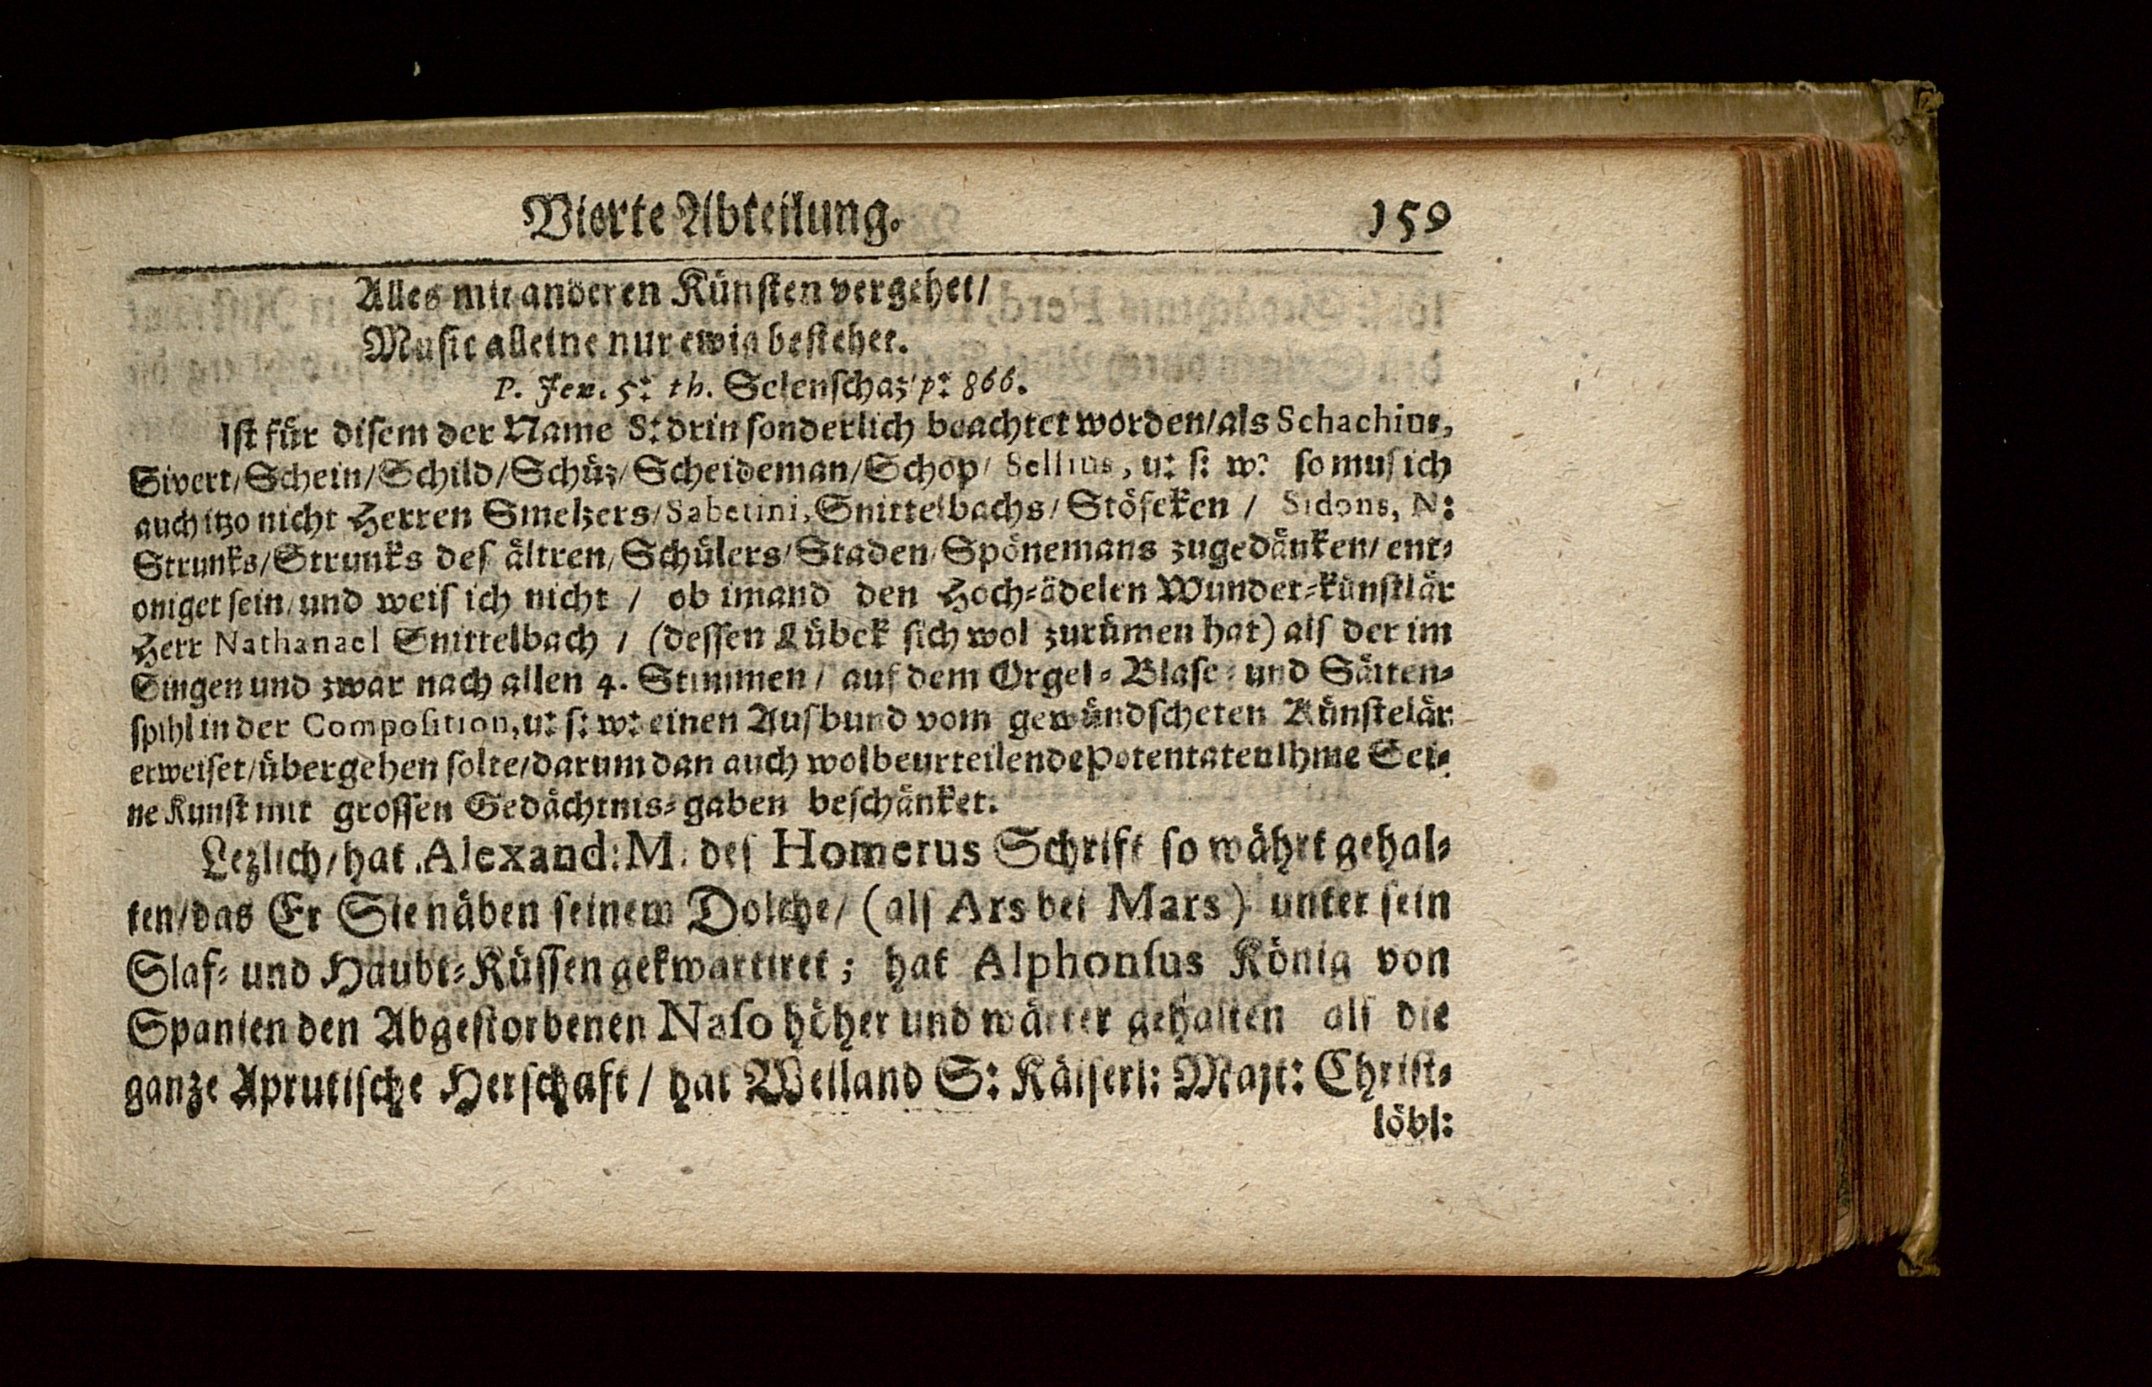 Vierte Abteilung.
159
Alles mit anderen Künsten vergehet/
Music alleine nur ewig bestehet.
P. Jen. 5: th. Selenschaz p: 866.
Ist für disem der Name S: drin sonderlich beachtet worden/als Schachius,
Sivert/Schein/Schild/Schüz/Scheideman/Schop/ Sellius, u: s: w: so mus ich
auch itzo nicht Herren Smelzers/Sabetini, Snittelbachs/Stöfeken / Sidons, N:
Strunks/Strunks des ältren/Schülers/Staden/Spönemans zugedänken/ ent-
oniget sein/und weis ich nicht / ob imand den Hoch-ädelen Wunder-künstlär
Herr Nathanael Snittelbach / (dessen Lübek sich wol zurümen hat) als der im
Singen und zwar nach allen 4. Stimmen/ auf dem Orgel-Blase- und Säiten-
spihl in der Composition, u: s: w: einen Ausbund vom gewündscheten Künstelär
erweiset/übergehen solte/darum dan auch wolbeurteilende Potentaten Ihme Sei-
ne Kunst mit grossen Gedächtnis-gaben beschänket.
Lezlich/hat Alexand: M. des Homerus Schrift so währt gehal-
ten/das Er Sie näben seinem Dolche/ (als Ars bei Mars) unter sein
Slaf- und Haubt-Küssen gekwartiret; hat Alphonsus König von
Spanien den Abgestorbenen Naso höher und wärter gehalten als die
ganze Aprutische Herschaft/ hat Weiland S: Käiserl: Majt: Christ-
löbl: